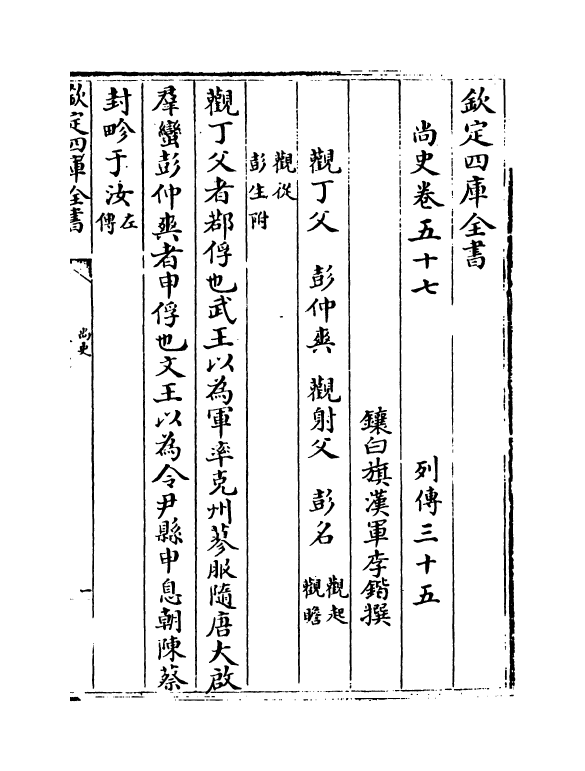 欽定四庫全書
尚史卷五十七　列傳三十五
鑲白旗漢軍李鍇撰
觀丁父　彭仲爽　觀射父　彭名　觀起觀瞻
觀從彭生附
觀丁父者鄀俘也武王以為軍率克州蓼服隨唐大啟
羣蠻彭仲爽者申俘也文王以為令尹縣申息朝陳蔡
封畛于汝左傳
欽定四庫全書
尚史
一